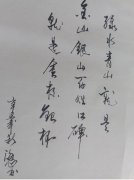 绿水青山就是
金山银山百姓口碑
就是金杯银杯